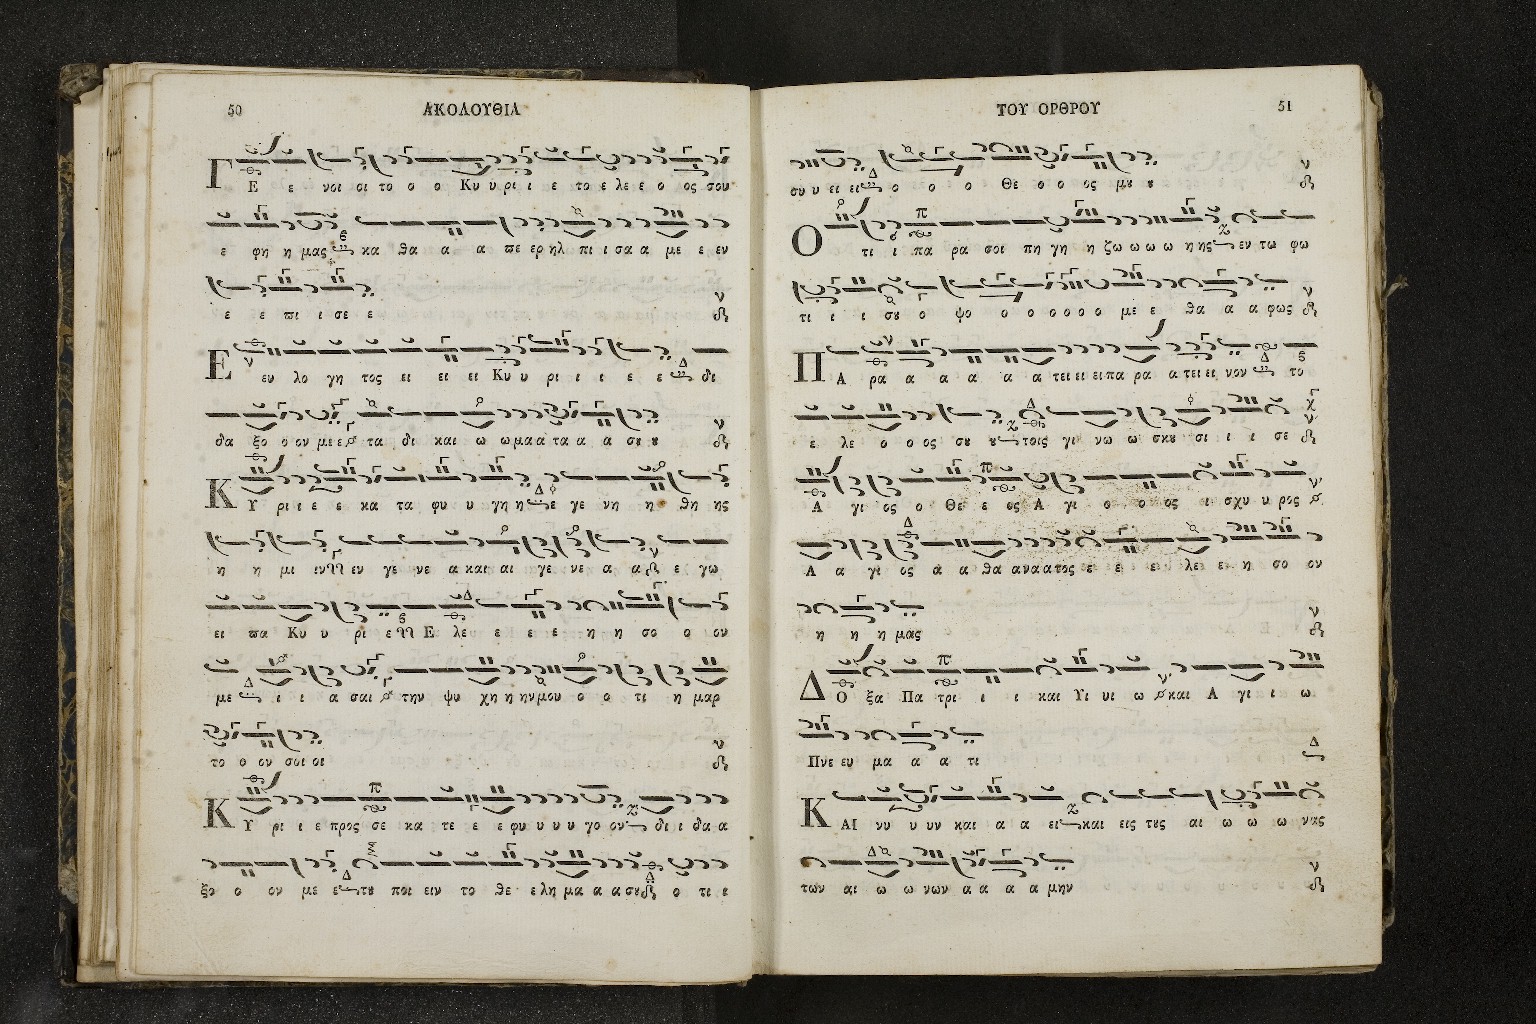 50
ΑΚΟΛΟΥΘΙΑ
ΓΕ ε νοι οι το ο ο Κυ υ ρι ι ε το ε λε ε ο ος σου
ε φη η μας κα θα α α πε ερ ηλ πι ι σα α με ε εν
ε ε πι ι σε ε
Ευ λο γη τος ει ει ει Κυ υ ρι ι ι ε ε δι
δα ξο ο ον με ε τα δι και ω ωμα α τα α α σου
ΚΥ ρι ι ε ε κα τα φυ υ γη η ε γε νη η θη ης
η η μι ιν εν γε νε α και αι γε νε α α ε γω
ει πα Κυ υ ρι ε Ε λε ε ε ε η η σο ο ον
με ι ι α σαι την ψυ χη η ηνμου ο ο τι η μαρ
το ο ον σοι οι
ΚΥ ρι ι ε προς σε κα τε ε εφυ υ υ υ γο ον δι ι δα α
ξο ο ον με ε του ποι ειν το θε ελη μα α α σου ο τι ι
ΤΟΥ ΟΡΘΡΟΥ
51
συ υ ει ει ο ο ο Θε ο ο ος μου
Ο τι ι πα ρα σοι πη γη η ζω ω ω ω η ης εν τω φω
τι ι ι σου ο ψο ο ο ο ο ο με ε θα α α φως
ΠΑ ρα α α α α α τει ει ειπα ρα α τει ει νον το
ε λε ο ο ος σου τοις γι νω ω σκου σι ι ι σε
Α γι ος ο Θε ε ος Α γι ο ο ος ι σχυ υ ρος
Α α γι ος α α θα ανα α τος ε ε ε λε ε η σο ον
η η η μας
ΔΟ ξα Πα τρι ι ι και Υι υι ω και Α γι ι ω
Πνε ευ μα α α τι
ΚΑΙ νυ υ υν και α α ει και εις τους αι ω ω ω νας
των αι ω ω νων α α α α μην